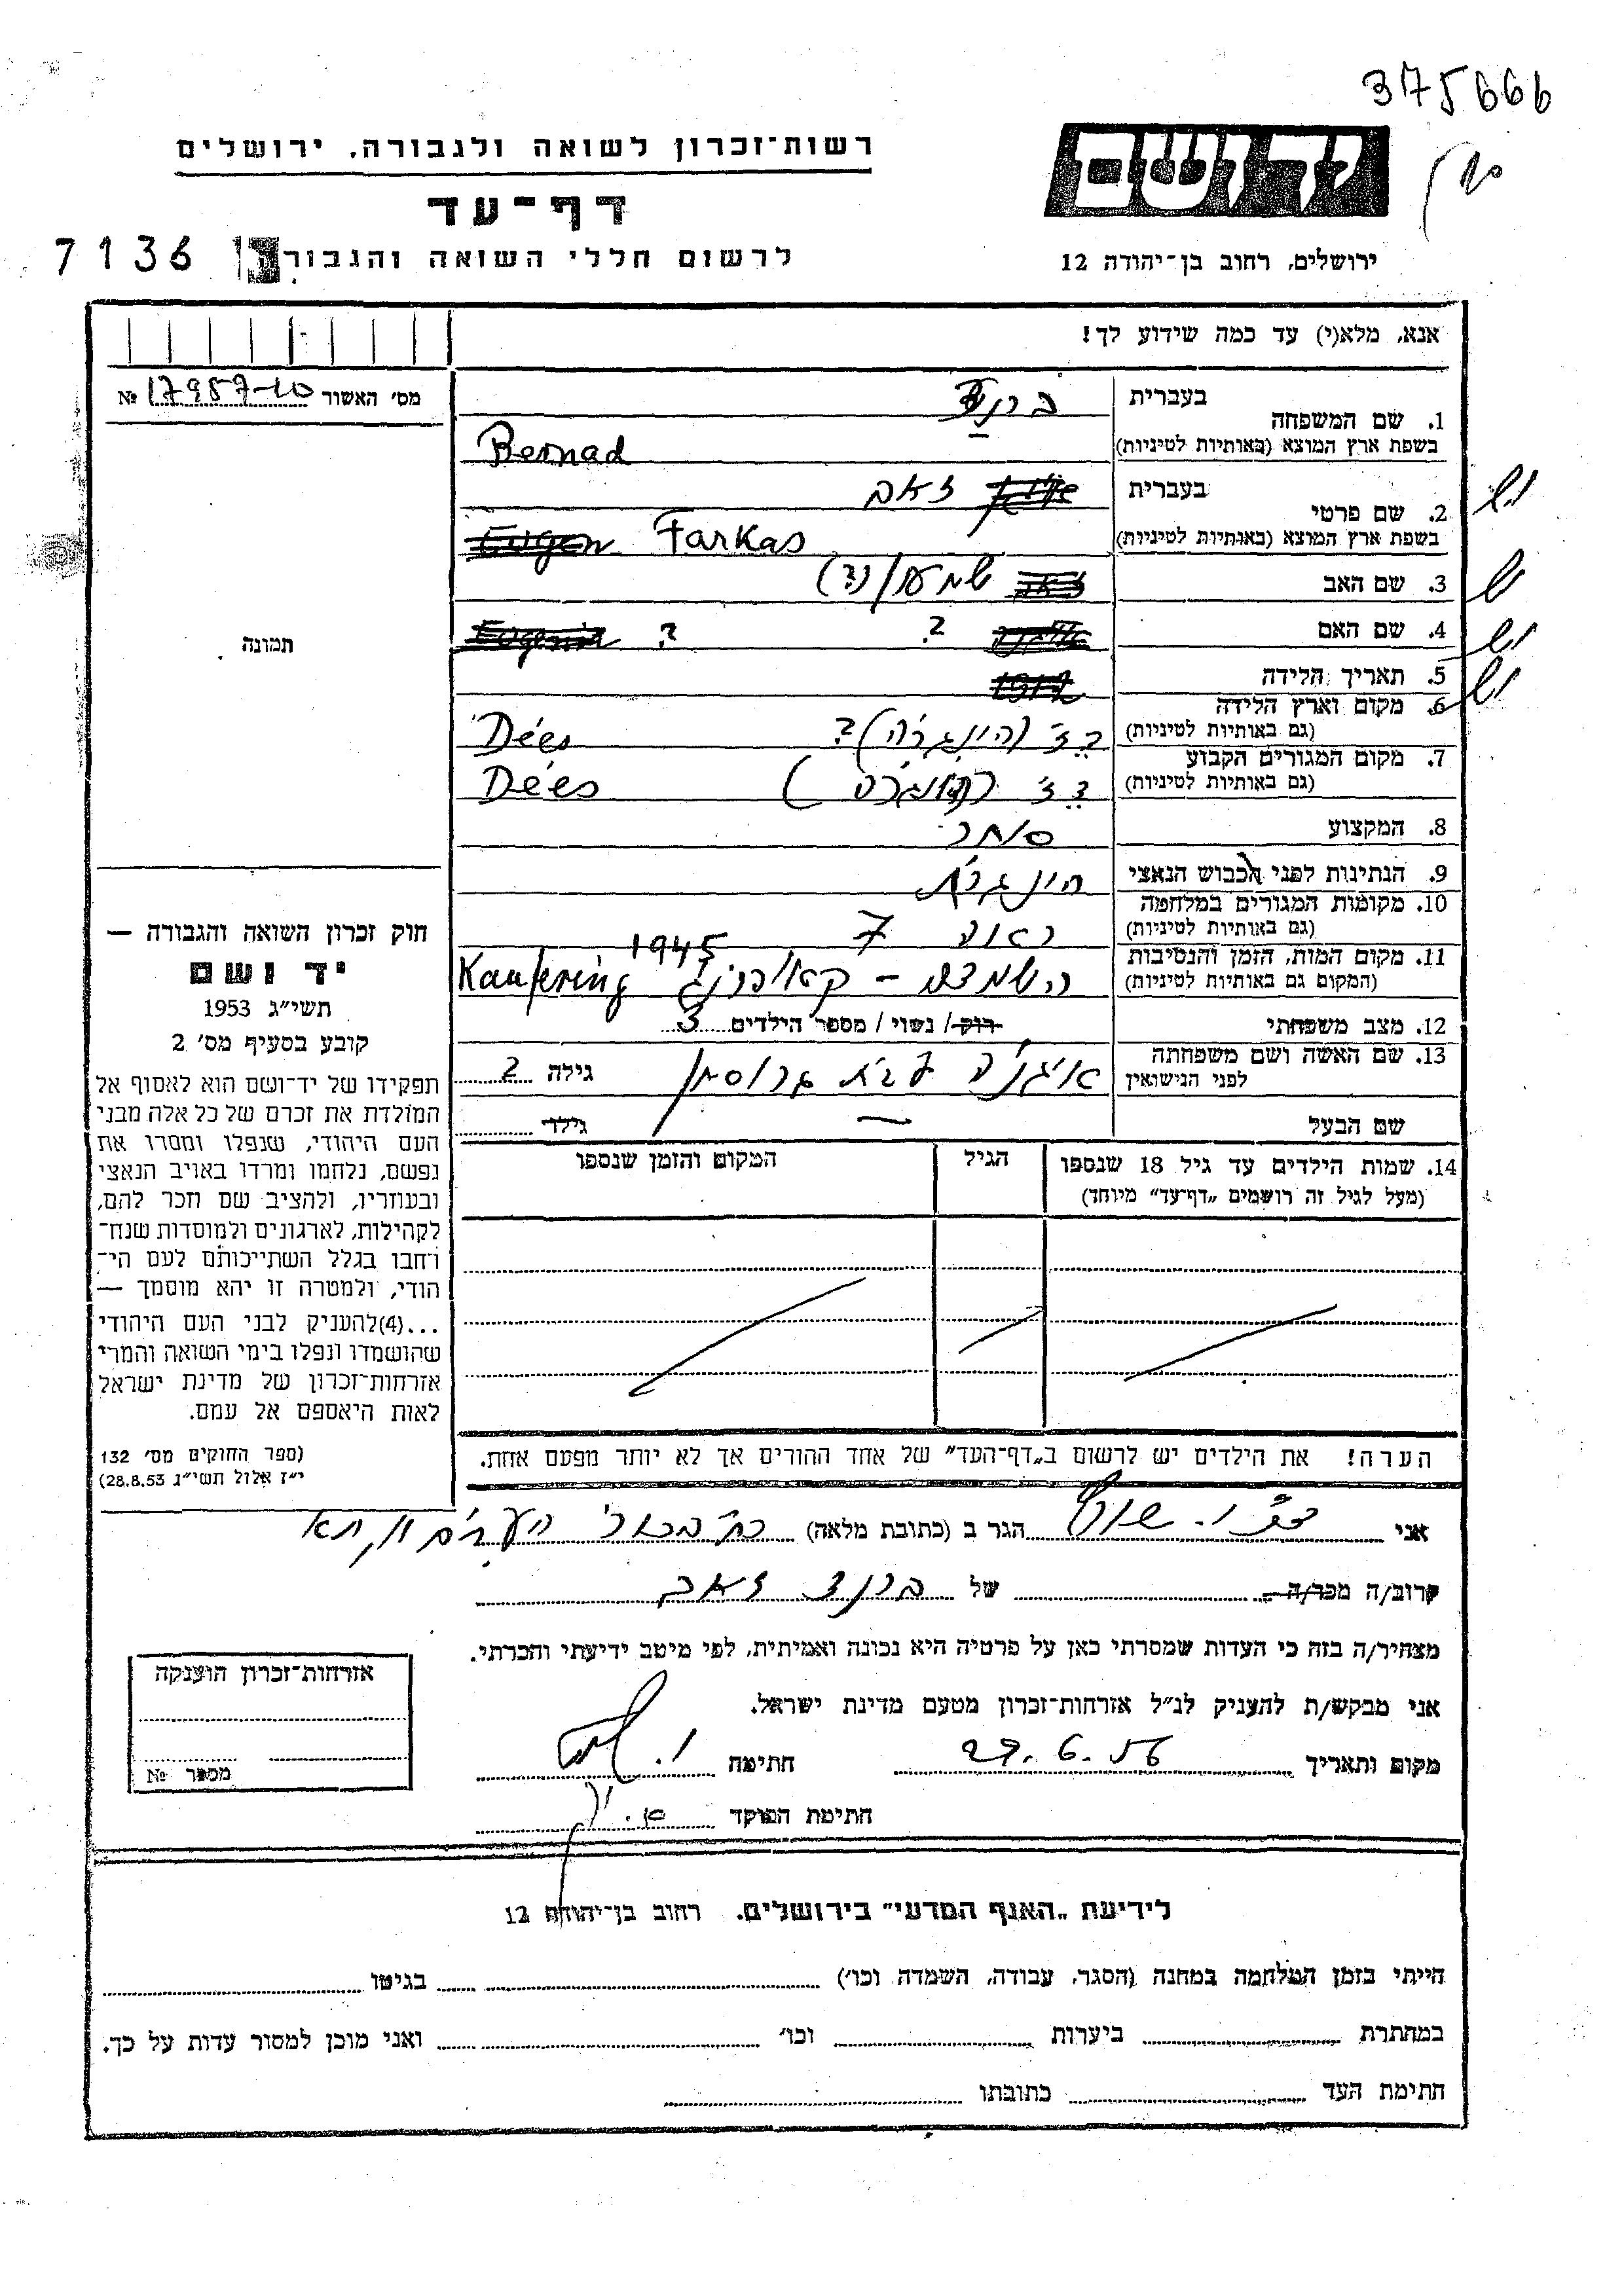 375666
רשות־זכרון לשואה ולגבורה. ירושלים
יד ושם
דף־עד
לרשום חללי השואה והגבורה
7136
ירושלים, רחוב בן־יהודה 12
אנא, מלא(י) עד כמה שידוע לך!
מס׳ האשור № 17957-10
1. שם המשפחה
בעברית
ברנד
בשפת ארץ המוצא (באותיות לטיניות)
Bernad
2. שם פרטי
בעברית
זאב
בשפת ארץ המוצא (באותיות לטיניות)
Eugen Farkas
3. שם האב
שמעון (?)
4. שם האם
? Eugenia ?
5. תאריך הלידה
6. מקום וארץ הלידה
(גם באותיות לטיניות)
דז׳ (הונגריה) ? Déés
7. מקום המגורים הקבוע
(גם באותיות לטיניות)
דז׳ Déés
8. המקצוע
סוחר
9. הנתינות לפני הכבוש הנאצי
הונגרית
10. מקומות המגורים במלחמה
(גם באותיות לטיניות)
כאות 7
11. מקום המות, הזמן והנסיבות
(המקום גם באותיות לטיניות)
1945
השמדה – קאופרינג Kaufering
12. מצב משפחתי
רוק / נשוי / מספר הילדים 3
13. שם האשה ושם משפחתה
לפני הנישואין
אוגניה לבית גרוסמן גילה ?
שם הבעל — גילו
14. שמות הילדים עד גיל 18 שנספו
(מעל לגיל זה רושמים „דף־עד” מיוחד)
הגיל
המקום והזמן שנספו
תמונה
חוק זכרון השואה והגבורה —
יד ושם
תשי״ג 1953
קובע בסעיף מס׳ 2
תפקידו של יד־ושם הוא לאסוף אל
המולדת את זכרם של כל אלה מבני
העם היהודי, שנפלו ומסרו את
נפשם, נלחמו ומרדו באויב הנאצי
ובעוזריו, ולהציב שם וזכר להם,
לקהילות, לארגונים ולמוסדות שנח־
רחבו בגלל השתייכותם לעם הי־
הודי, ולמטרה זו יהא מוסמך —
...(4)להעניק לבני העם היהודי
שהושמדו ונפלו בימי השואה והמרי
אזרחות־זכרון של מדינת ישראל
לאות היאספם אל עמם.
(ספר החוקים מס׳ 132
י״ז אלול תשי״ג 28.8.53)
הערה! את הילדים יש לרשום ב„דף־העד” של אחד ההורים אך לא יותר מפעם אחת.
אני
הגר ב (כתובת מלאה)
קרוב/ה מכר/ה של ברנד זאב
מצהיר/ה בזה כי העדות שמסרתי כאן על פרטיה היא נכונה ואמיתית, לפי מיטב ידיעתי והכרתי.
אני מבקש/ת להעניק לנ״ל אזרחות־זכרון מטעם מדינת ישראל.
מקום ותאריך 27.6.56 חתימה
חתימת הפוקד
אזרחות־זכרון הוענקה
מספר №
לידיעת „האגף המדעי” בירושלים. רחוב בן־יהודה 12
הייתי בזמן המלחמה במחנה (הסגר, עבודה, השמדה וכו׳) בגיטו
במחתרת ביערות וכו׳ ואני מוכן למסור עדות על כך.
חתימת העד כתובתו